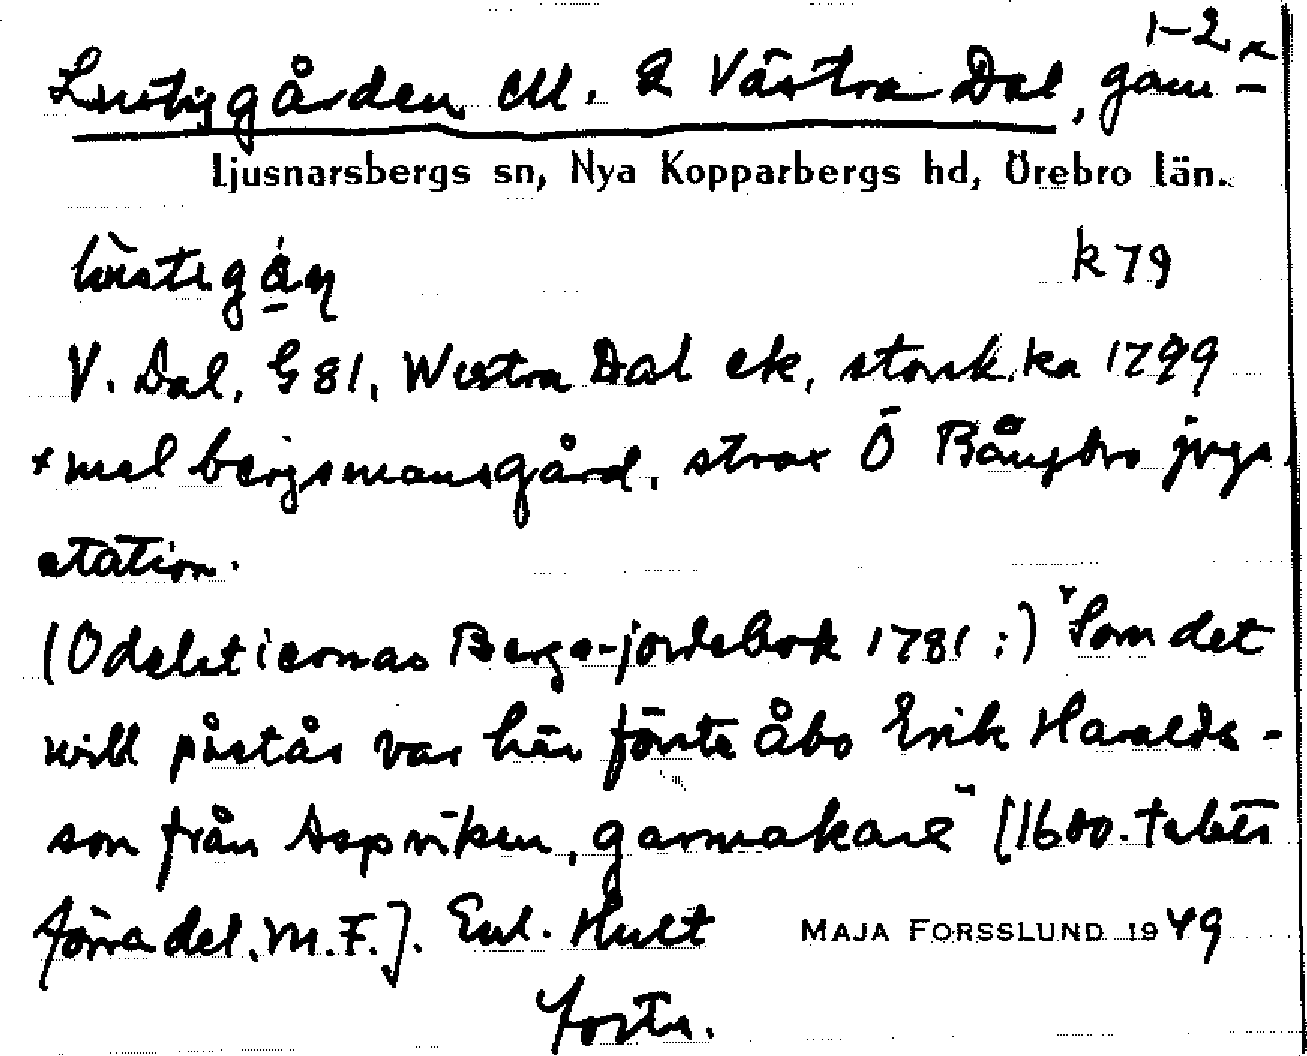 1-2 x
Lustiggården ell. & Västra Dal, gam-
Ljusnarsbergs sn, Nya Kopparbergs hd, Örebro län.
k 79
V. Dal, G 81, Westra Dal ek, storsk.ka 1799
x mel bergsmansgård, strax Ö Bångbro jvgs.
station.
(Odelstiernas Bergs-jordebok 1781:) "Som det
will påstås var här förste åbo Erik Haralds-
son från Aspviken, garmakare" [1600-talets
förra del. M.F.]. Enl. Hult
MAJA FORSSLUND 1949
Forts.